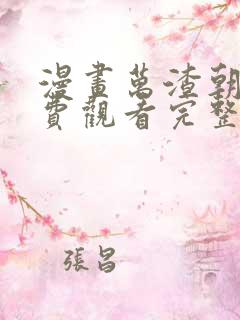 漫畫萬渣朝
費觀看完整
張昌